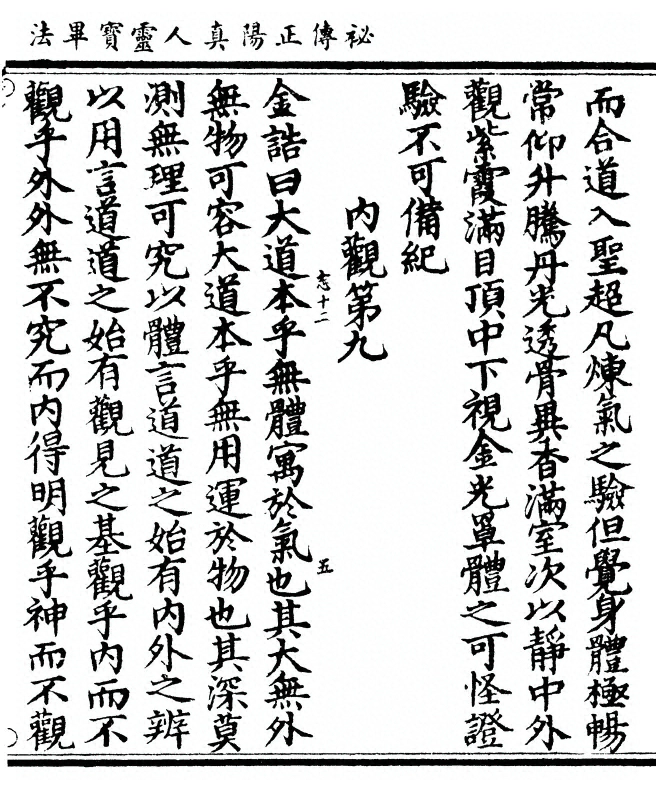 祕傳正陽真人靈寶畢法
而合道入聖超凡煉氣之驗但覺身體極暢
常仰升騰丹光透骨異香滿室次以靜中外
觀紫霞滿目頂中下視金光罩體之可怪證
驗不可備紀
內觀第九
志十二 五
金誥曰大道本乎無體寓於氣也其大無外
無物可容大道本乎無用運於物也其深莫
測無理可究以體言道道之始有內外之辨
以用言道道之始有觀見之基觀乎內而不
觀乎外外無不究而內得明觀乎神而不觀